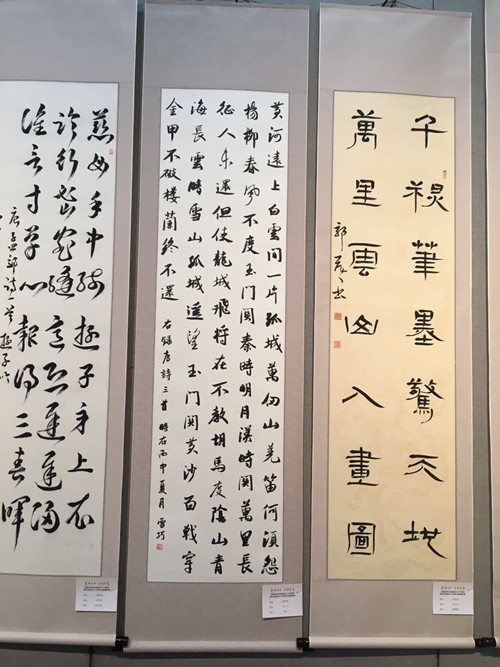 千秋筆墨驚天地
萬里雲山入畫圖
黄河遠上白雲間一片孤城萬仞山羌笛何須怨
楊柳春風不度玉门関秦時明月漢時関萬里長
征人未還但使龍城飛将在不教胡馬度陰山青
海長雲暗雪山孤城遥望玉门関黄沙百戰穿
金甲不破楼蘭終不還 右録唐詩三首 時在丙申夏月
慈母手中线遊子身上衣
临行密密縫意恐遲遲歸
谁言寸草心報得三春暉
唐孟郊詩一首 遊子吟